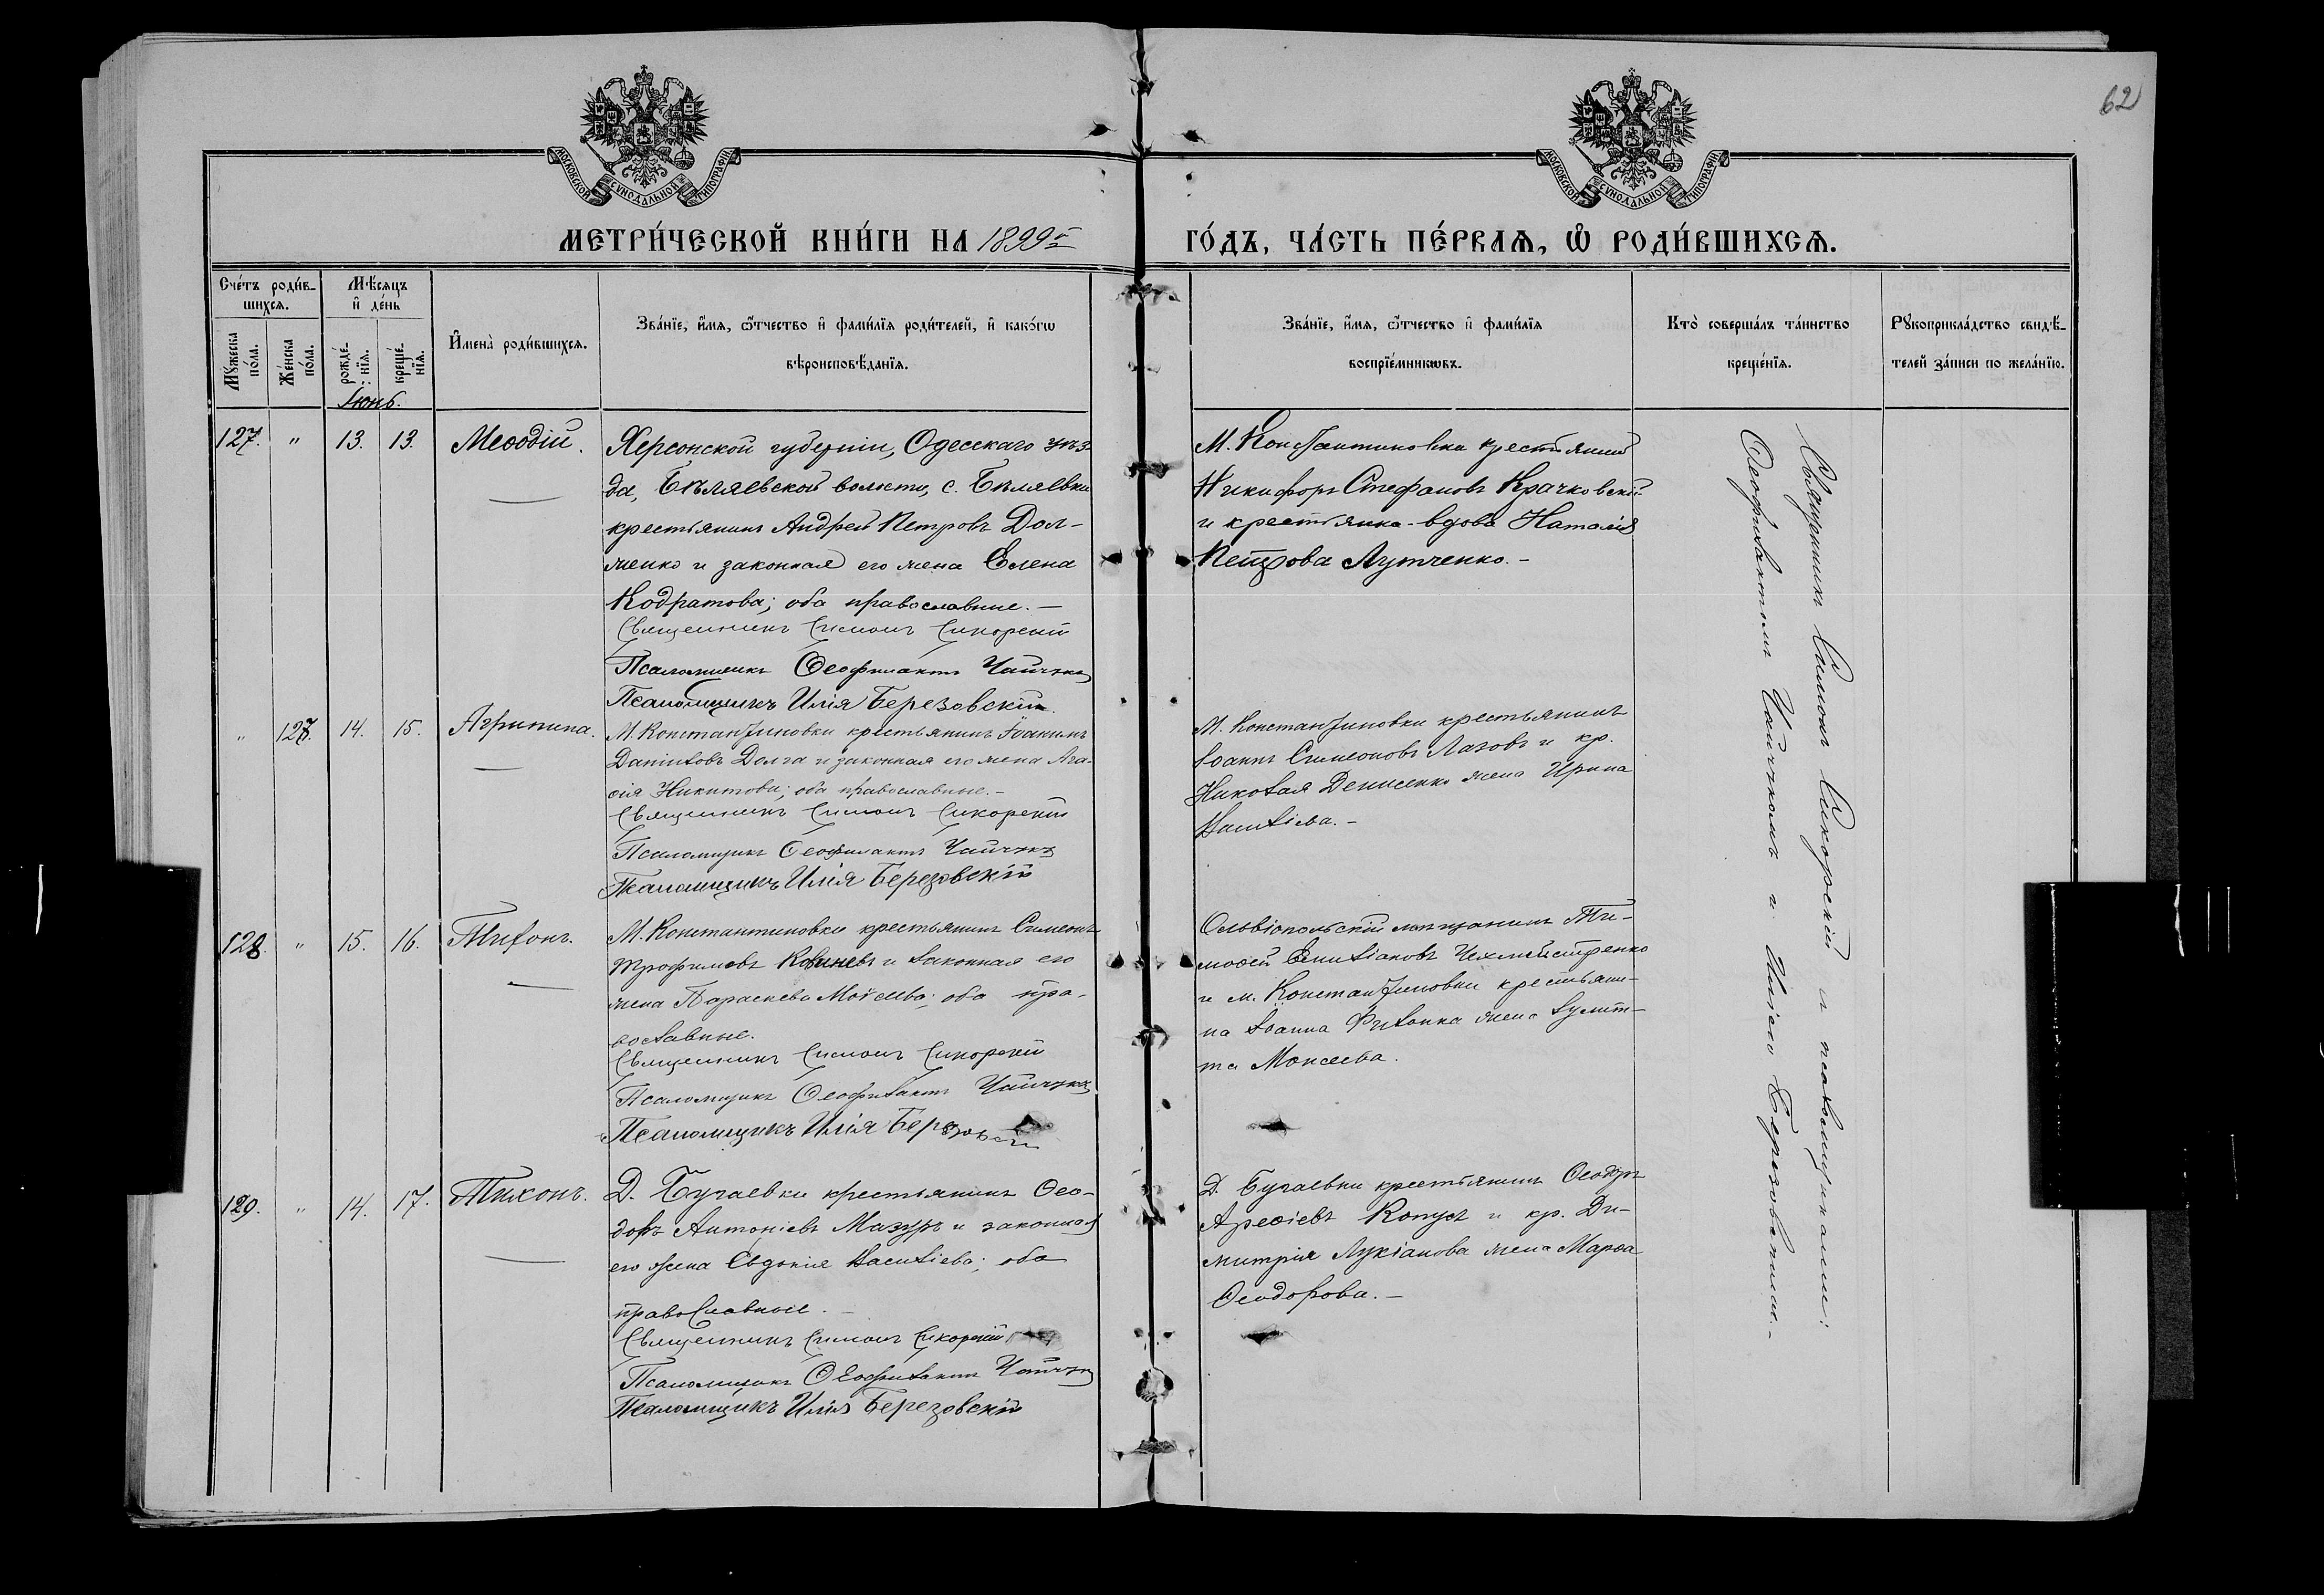 62
МОСКОВСКОЙ СѴНОДАЛЬНОЙ ТИПОГРАФІИ
МОСКОВСКОЙ СѴНОДАЛЬНОЙ ТИПОГРАФІИ
МЕТРИ́ЧЕСКОЙ КНИ́ГИ НА 1899 г.
ГО́ДЪ, ЧА́СТЬ ПЕ́РВАѦ, Ѡ҆ РОДИ́ВШИХСѦ.
Сче́тъ роди́в-
шихсѧ.
Мꙋ́жеска по́ла.
Же́нска по́ла.
Мѣ́сѧцъ
и҆ де́нь
рожде́-
нїѧ.
креще́-
нїѧ.
Іюнь.
И҆мена̀ роди́вшихсѧ.
Зва́нїе, и҆́мѧ, ѻ҆́тчество и҆ фами́лїѧ роди́телей, и҆ како́гѡ
вѣроисповѣ́данїѧ.
Зва́нїе, и҆́мѧ, ѻ҆́тчество и҆ фами́лїѧ
воспрїе́мникѡвъ.
Кто̀ соверша́лъ та́инство
креще́нїѧ.
Рꙋкоприкла́дство свидѣ́-
телей за́писи по жела́нїю.
127. " 13. 13. Меѳодій.
Херсонской губерніи, Одесскаго уѣз-
да, Бѣляевской волости, с. Бѣляевки
крестьянинъ Андрей Петровъ Дол-
женко и законная его жена Елена
Кодратова; оба православные.-
Священникъ Симонъ Сикорскій
Псаломщикъ Ѳеофилактъ Чайчукъ
Псаломщикъ Илія Березовскій.
М. Константиновки крестьянинъ
Никифоръ Стефановъ Крачковскій
и крестьянка-вдова Наталія
Петрова Лутченко.-
" 127. 14. 15. Агрипина.
М. Константиновки крестьянинъ Іоакимъ
Даніиловъ Долга и законная его жена Ага-
ѳія Никитова; оба православные.-
Священникъ Симонъ Сикорскій
Псаломщикъ Ѳеофилактъ Чайчукъ
Псаломщикъ Илія Березовскій
М. Константиновки крестьянинъ
Іоаннъ Симеоновъ Лазовъ и кр.
Николая Денисенко жена Ирина
Василіева.-
128. " 15. 16. Тихонъ.
М. Константиновки крестьянинъ Симеонъ
Трофимовъ и законная его
жена Параскева Моѵсеева; оба пра-
вославные.
Священникъ Симонъ Сикорскій
Псаломщикъ Ѳеофилактъ Чайчукъ
Псаломщикъ Илія Березовскій
Ольвіопольскій мѣщанинъ Ти-
моѳей Емиліановъ Чехместренко
и м. Константиновки крестьяни-
на Іоанна жена Іулит-
та Моисеева.
129. " 14. 17. Тихонъ.
Д. Бугаевки крестьянинъ Ѳео-
доръ Антоніевъ Мазуръ и законная
его жена Евдокія Василіева; оба
православные.-
Священникъ Симонъ Сикорскій
Псаломщикъ Ѳеофилактъ Чайчукъ
Псаломщикъ Илія Березовскій
Д. Бугаевки крестьянинъ Ѳеодоръ
Ареѳіевъ Копусъ и кр. Ди-
митрія Лукіанова жена Марѳа
Ѳеодорова.-
Священникъ Симонъ Сикорскій и псаломщиками:
Ѳеофилактомъ Чайчукомъ и Иліею Березовскимъ.-